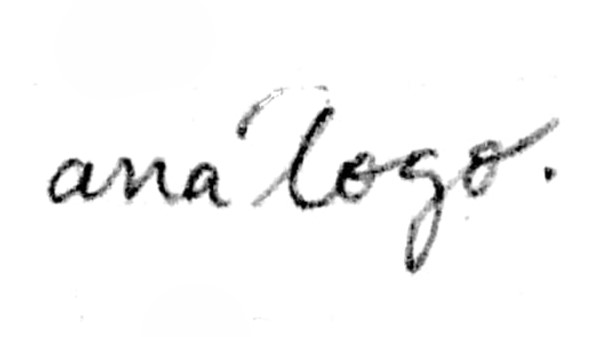 análogo.